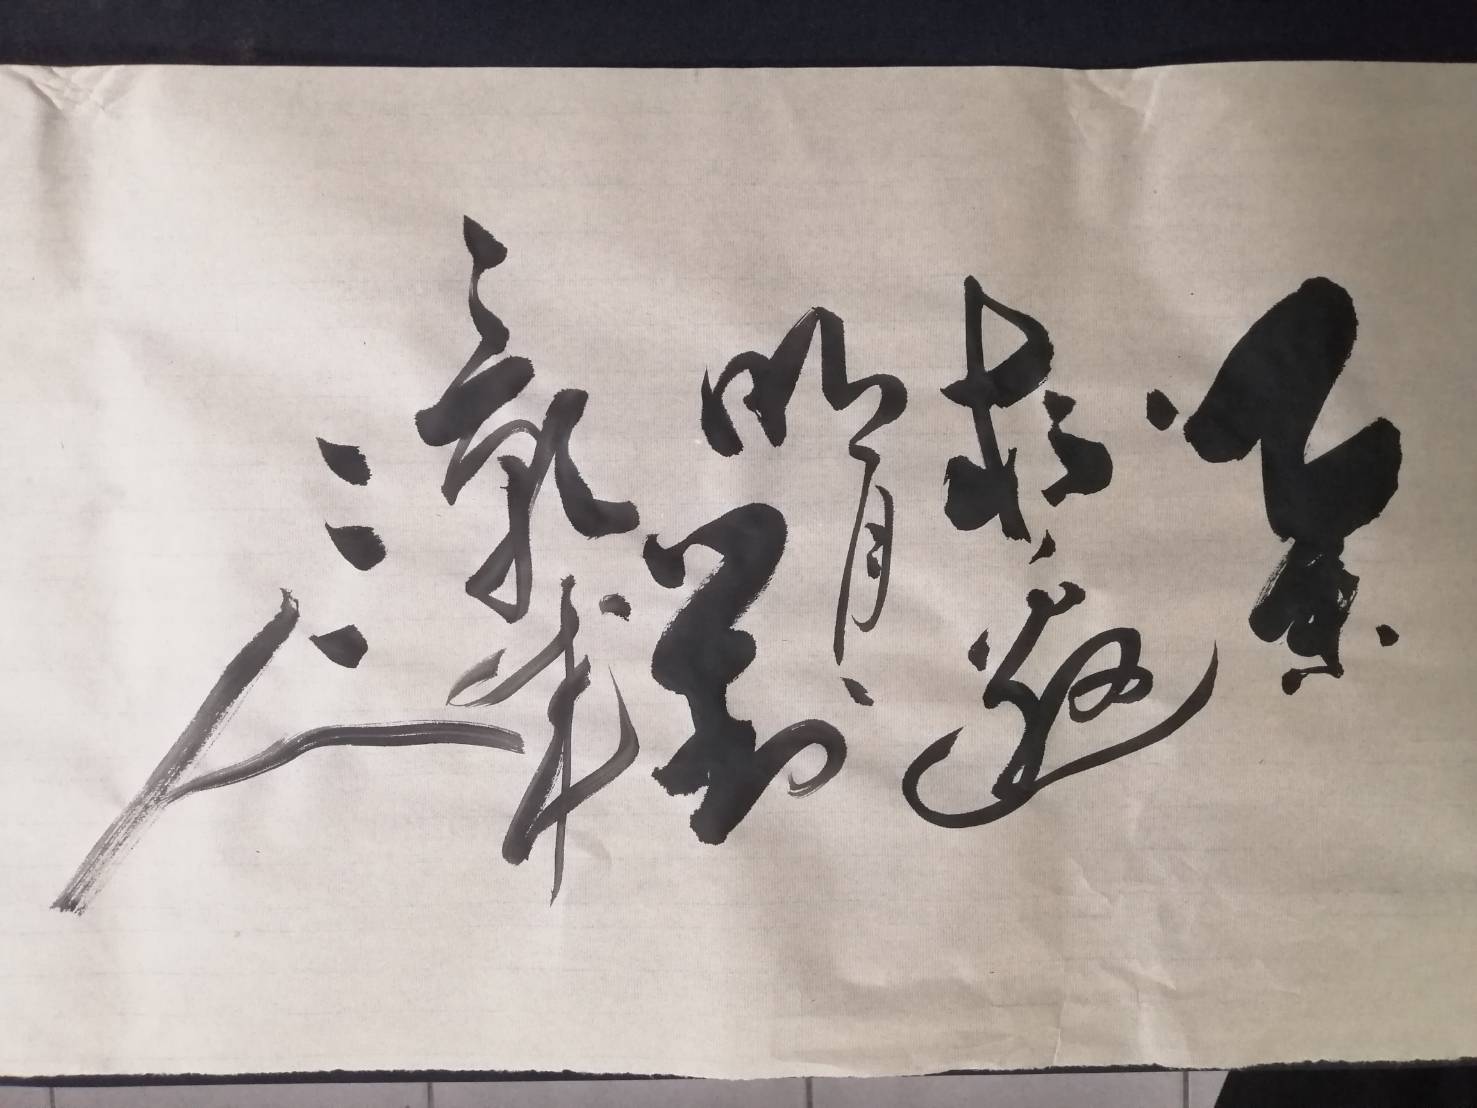 舉
杯邀
明月對
影成
三人